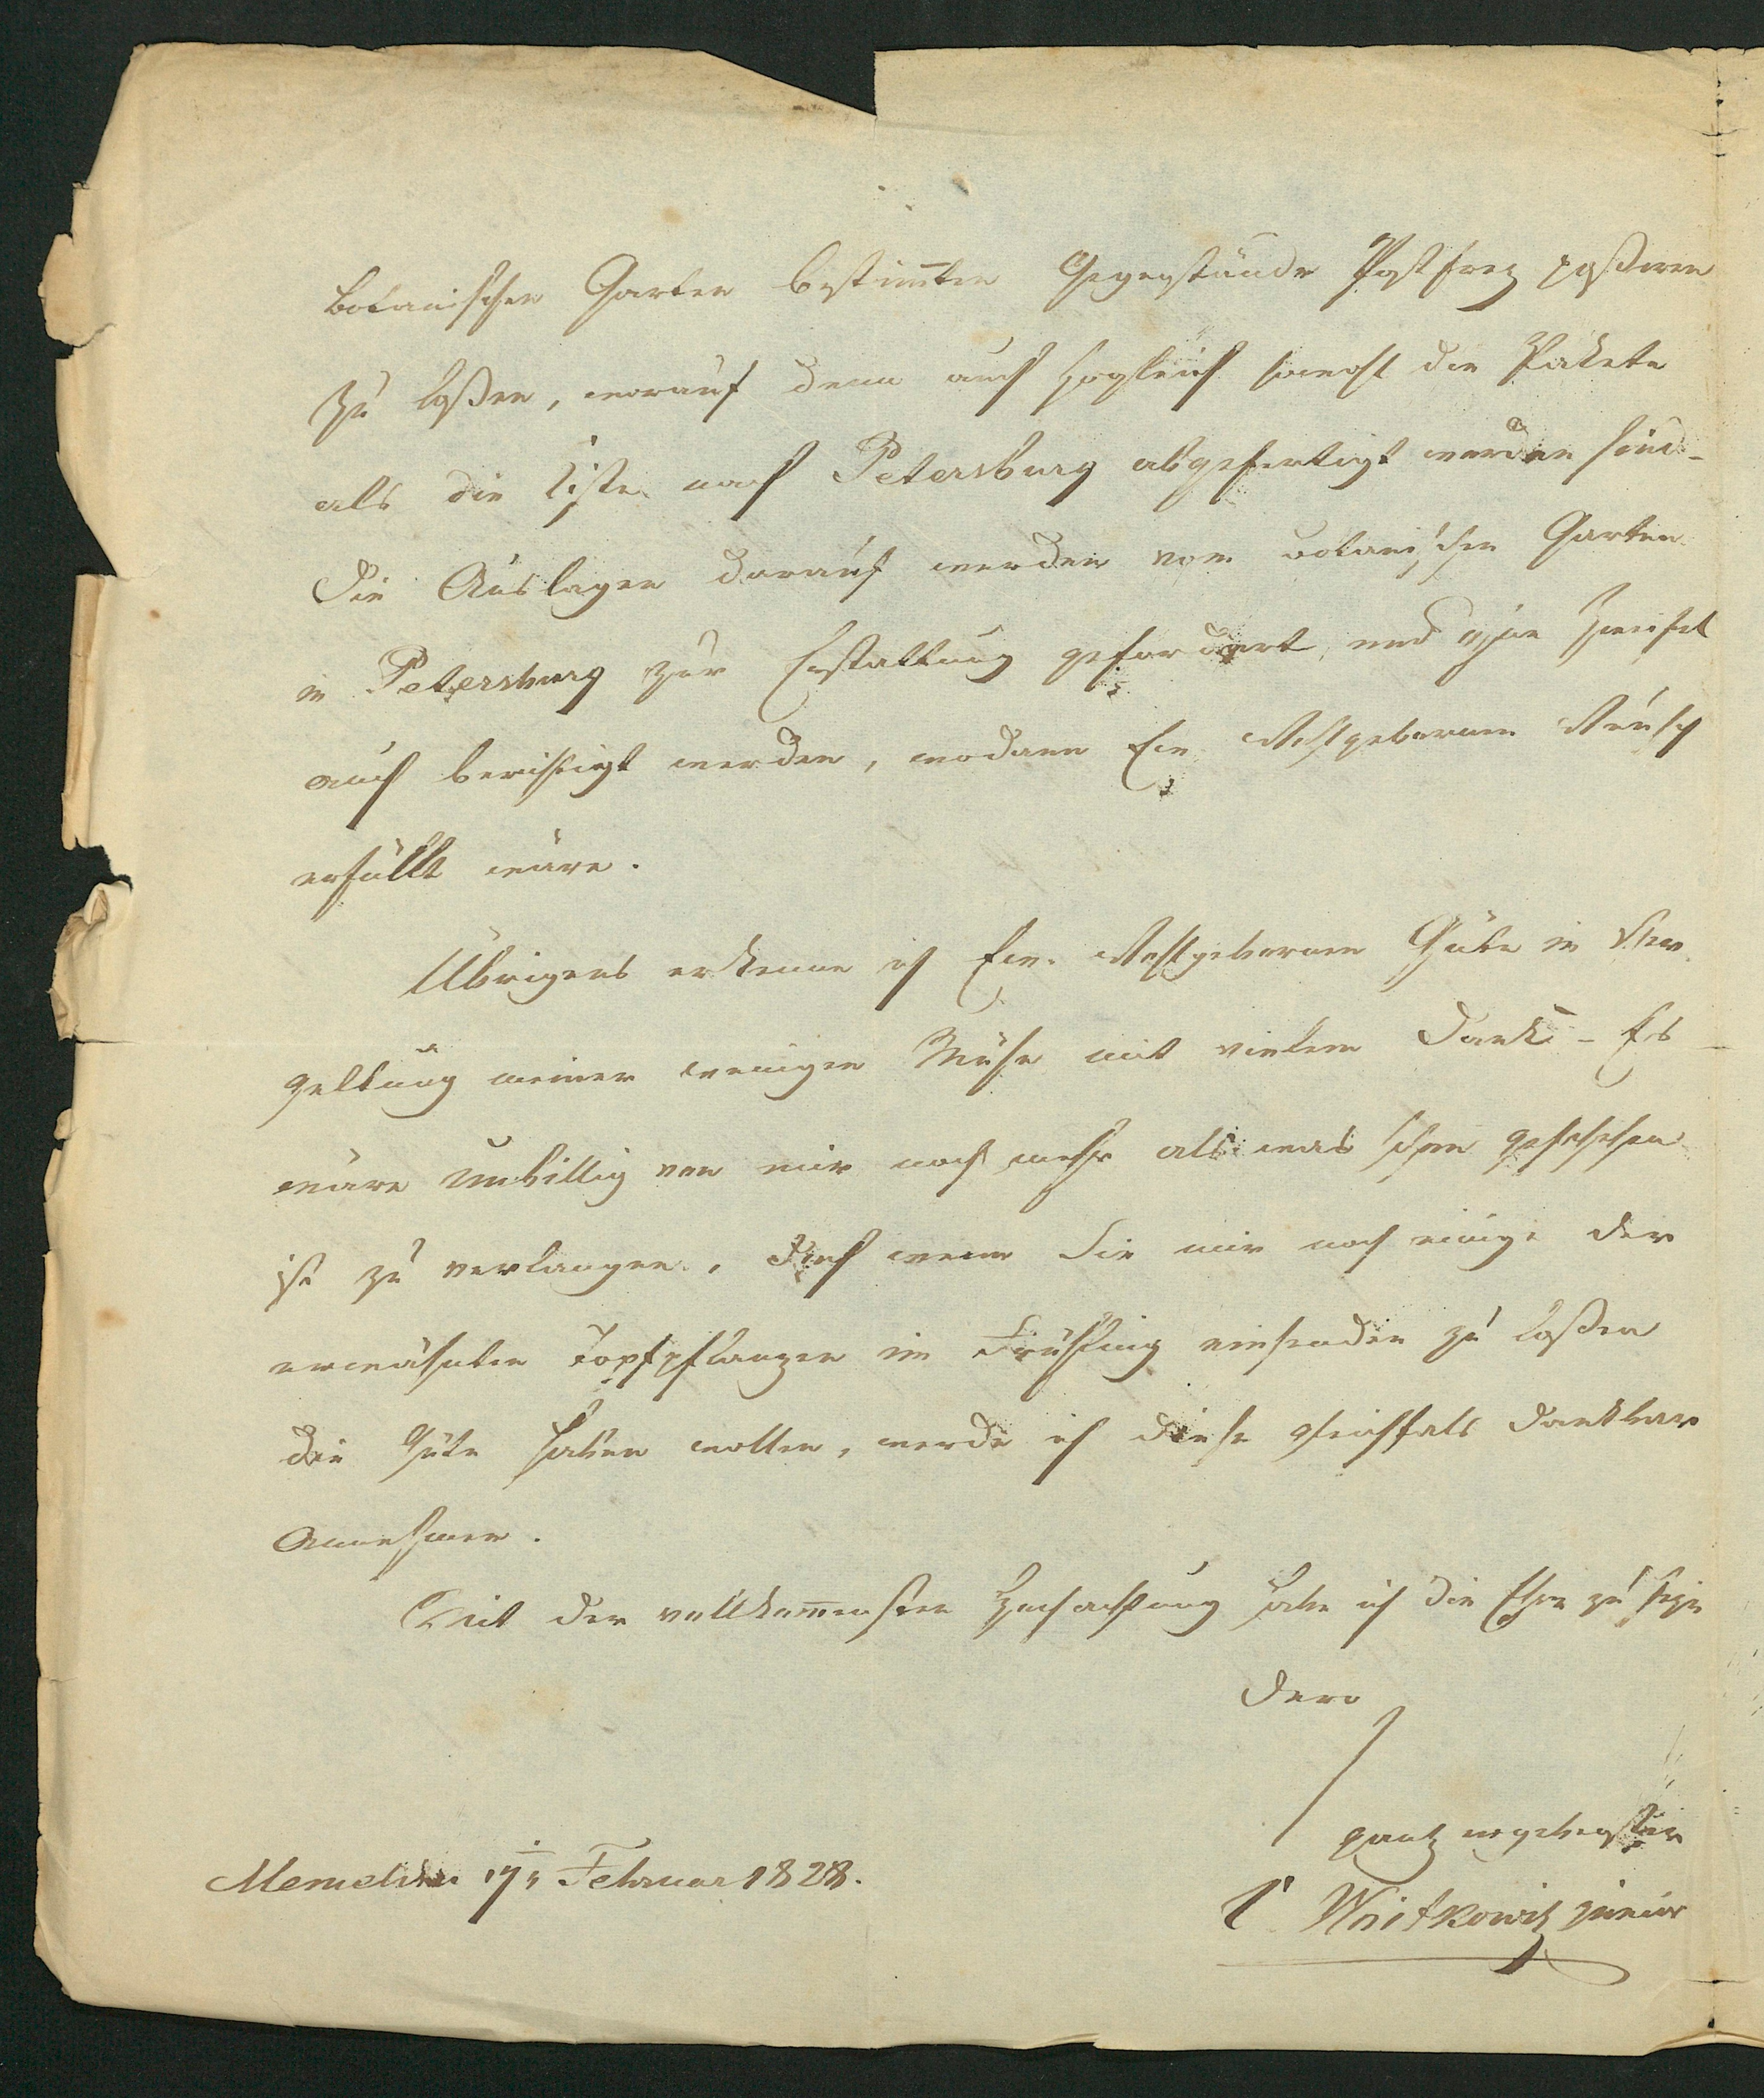 botanischen Garten bestim̅ten Gegenstände Postfrey paßiren
zu laßen, worauf denn auch sogleich sowohl die Pakete
als die Kiste nach Petersburg abgefertigt worden sind-
Die Auslagen darauf werden vom botanischen Garten
in Petersburg zur Erstattung gefordert, und ohne Zweifel
auch berichtigt werden, wodann Ew. Wohlgeboren Wunsch
erfüllt wäre.
Übrigens erkenne ich Ew. Wohlgeboren Güte in Ver-
geltung meiner wenigen Mühe mit vielem Dank - Es
wäre unbillig von mir noch mehr als was schon geschehen
ist zu verlangen, doch wenn Sie mir noch einige der
erwähnten Topfpflanzen im Frühling einsenden zu laßen
die Güte haben wollen, werde ich diese gleichfals dankbar
annehmen.
Mit der vollkom̅ensten Hochachtung habe ich die Ehre zu seyn
Dero
ganz ergebenster
Memel den 17 Februar 1828.
Woitkowitz junior